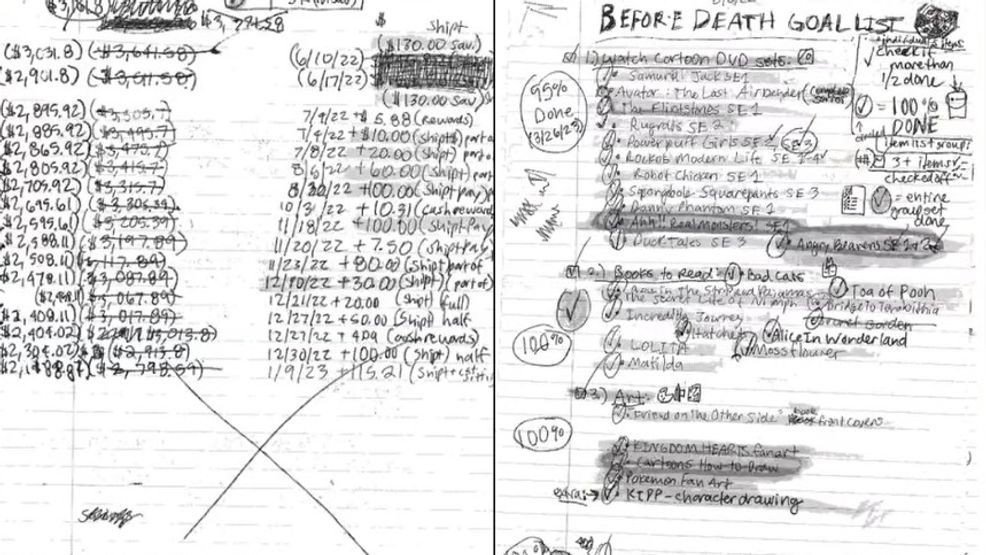 $3,771.58
$
Shipt
$130.00 sav.)
($3,031.8) ($3,641.58)
(6/10/22)
($2,901.8) ($3,611.58)
(6/17/22)
($130.00 sav)
($2,895.92) ($3,505.7) 7/4/22 + $5.88 (rewards)
($2,885.92) ($3,495.7) 7/4/22 + $10.00 (shipt) part o
($2,865.92) ($3,475.7) 7/8/22 + 20.00 (shipt) part
($2,805.92) ($3,415.7) 8/6/22 + 60.00 (shipt) part
($2,705.92) ($3,315.7) 8/20/22 +100.00 (Shipt pay) p
($2,695.61) ($3,305.39) 10/3/22 + 10.31 (cash reward
($2,595.61) ($3,205.39) 11/18/22 + 100.00 (Shipt Pay)
($2,588.11) ($3,197.89) 11/20/22 + 7.50 (Shipt Pay)
($2,508.11) ($3,117.89) 11/23/22 + 80.00 (shipt part of
($2,478.11) ($3,087.89) 12/10/22 + 30.00 (Shipt) (part of)
($2,458.11) ($3,067.89) 12/21/22 + 20.00 (shipt) (full)
($2,408.11) ($3,017.89) 12/27/22 + 50.00 (Shipt) half
($2,404.02) 3,013.8) 12/27/22 + 4.09 (cash rewards)
($2,304.02) ($2,913.8) 12/30/22 + 100.00 (shipt) half
($2,798.59) 1/9/23 + 115.21 (shipt + cat sitting)
BEFORE DEATH GOAL LIST
individual items
check if
more than
1/2 done
= 100%
DONE
item list group:
3+ items
checked off
= entire
group set
done
95%
Done
(3/26/25)
1.) Watch Cartoon DVD sets:
Samurai Jack SE 1
Avatar: The Last Airbender (complete series)
The Flintstones SE 1
Rugrats SE 2
Powerpuff Girls SE 2 SE 3
Rocko's Modern Life SE 1-4
Robot Chicken SE 1
Spongebob Squarepants SE 3
Danny Phantom SE 1
Ahh!! Real Monsters! SE 1
Duck Tales SE 3 Angry Beavers SE 1 or 2
2.) Books to Read: Bad Cats
Boy in the Striped Pajamas Tao of Pooh
The Secret Life of Nymph Bridge to Terabithia
Incredible Journey Secret Garden
Hatchet Alice In Wonderland
120%
LOLITA Mossflower
Matilda
3.) Art:
"Friend on the Other Side" book front covers
100%
KINGDOM HEARTS fanart
Cartoons How to Draw
Pokemon Fan Art
extra: KIPP - character drawing